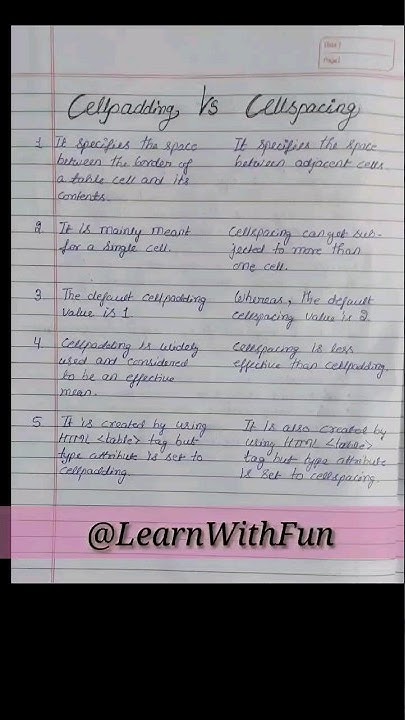 Date
Page
Cellpadding Vs Cellspacing
1. It specifies the space
between the border of
a table cell and its
contents.
It specifies the space
between adjacent cells.
2. It is mainly meant
for a single cell.
Cellspacing can get sub-
jected to more than
one cell.
3. The default cellpadding
value is 1.
Whereas, the default
cellspacing value is 2.
4. Cellpadding is widely
used and considered
to be an effective
mean.
Cellspacing is less
effective than cellpadding.
5. It is created by using
HTML <table> tag but
type attribute is set to
cellpadding.
It is also created by
using HTML <table>
tag but type attribute
is set to cellspacing.
@LearnWithFun